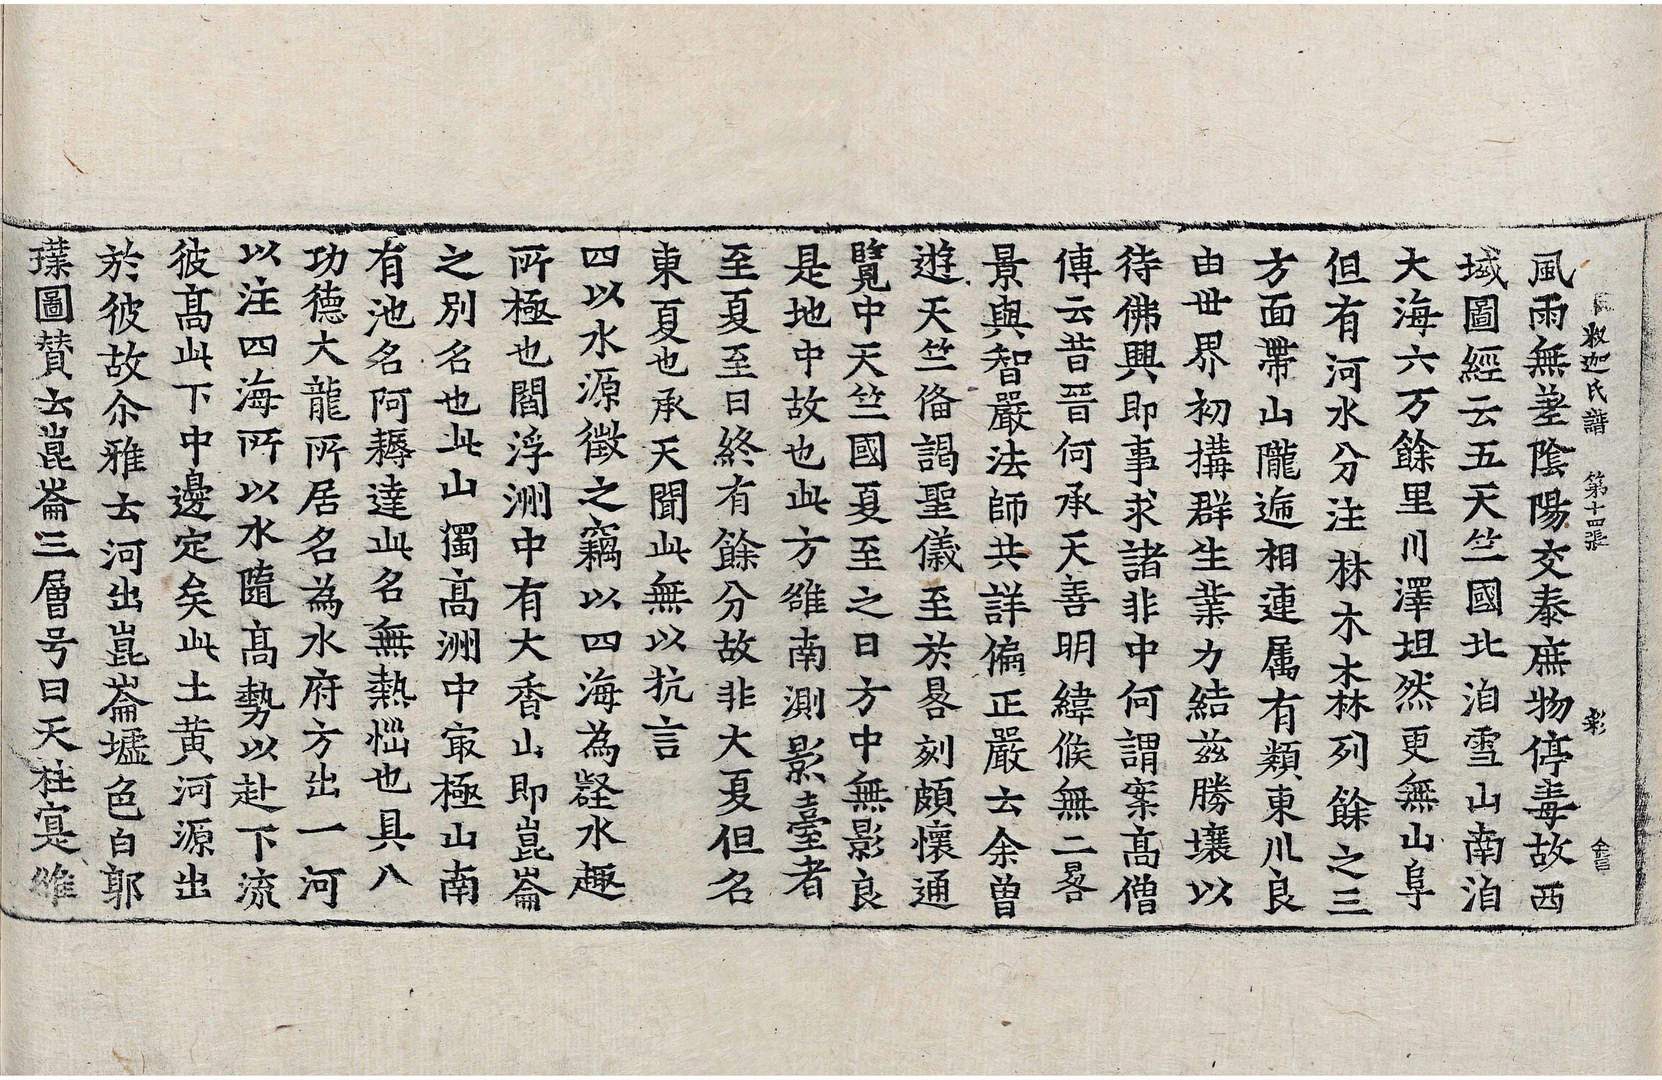 釋迦氏譜 第十四張
風雨無差陰陽交泰庶物停毒故西
域圖經云五天竺國北洎雪山南洎
大海六万餘里川澤坦然更無山阜
但有河水分注林木森林列餘之三
方面帶山隴迤相連属有類東川良
由世界初搆群生業力結茲勝壤以
待佛興即事求諸非中何謂案髙僧
傳云昔晉何承天善明緯候無二畧
景與智嚴法師共詳偏正嚴云余曽
遊天竺俻謁聖儀至於晷刻頗懷通
覽中天竺國夏至之日方中無影良
是地中故也此方雒南測影臺者
至夏至日終有餘分故非大夏但名
東夏也承天聞此無以抗言
四以水源徵之竊以四海為壑水趣
所極也閻浮洲中有大香山即崑崙
之別名也此山獨髙洲中㝡極山南
有池名阿耨達此名無熱惱也具八
功德大龍所居名為水府方出一河
以注四海所以水隨髙勢以赴下流
彼髙此下中邊定矣此土黄河源出
於彼故尒雅云河出崑崙墟色白郭
璞圖賛云崑崙三層号曰天柱寔維